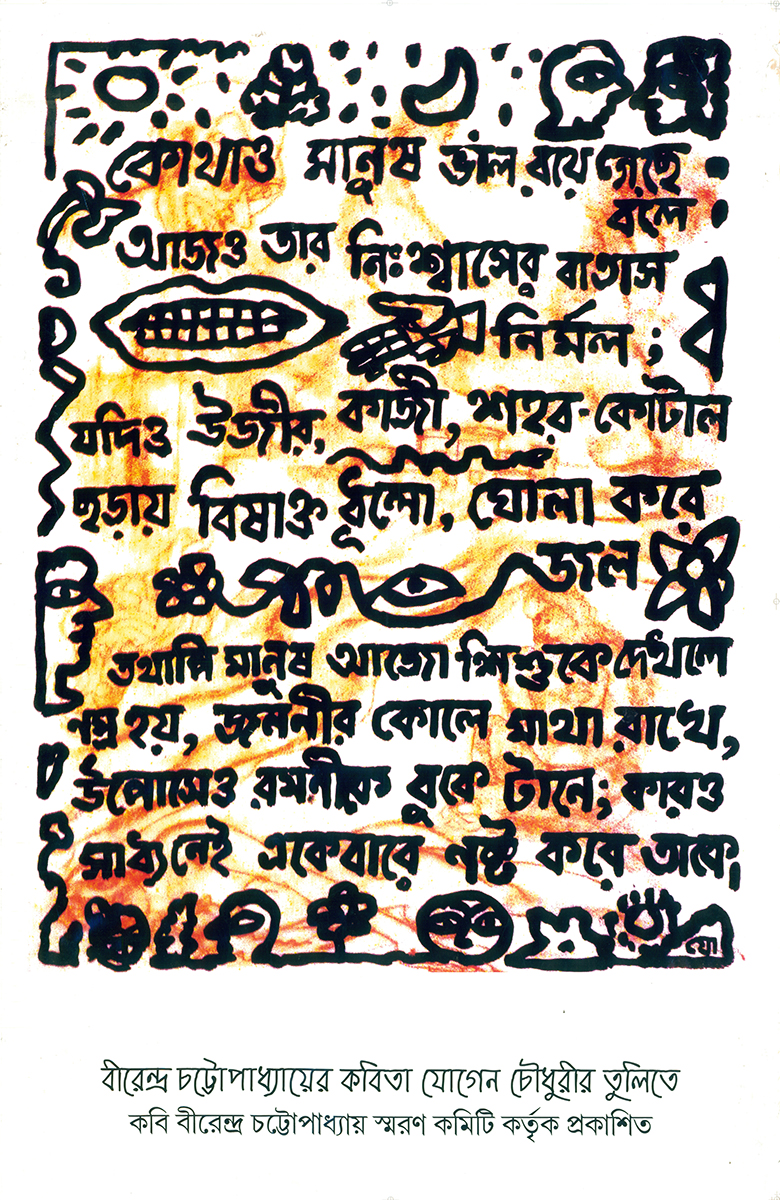 কোথাও মানুষ ভাল রয়ে গেছে
বলে
আজও তার নিঃশ্বাসের বাতাস
নির্মল;
যদিও উজীর, কাজী, শহর-কোটাল
ছড়ায় বিষাক্ত ধূলো, ঘোলা করে
জল
তথাপি মানুষ আজো শিশুকে দেখলে
নম্র হয়, জননীর কোলে মাথা রাখে,
উপোসেও রমণীকে বুকে টানে; কারও
সাধ্য নেই একেবারে নষ্ট করে তাকে।
যো
বীরেন্দ্র চট্টোপাধ্যায়ের কবিতা যোগেন চৌধুরীর তুলিতে
কবি বীরেন্দ্র চট্টোপাধ্যায় স্মরণ কমিটি কর্তৃক প্রকাশিত